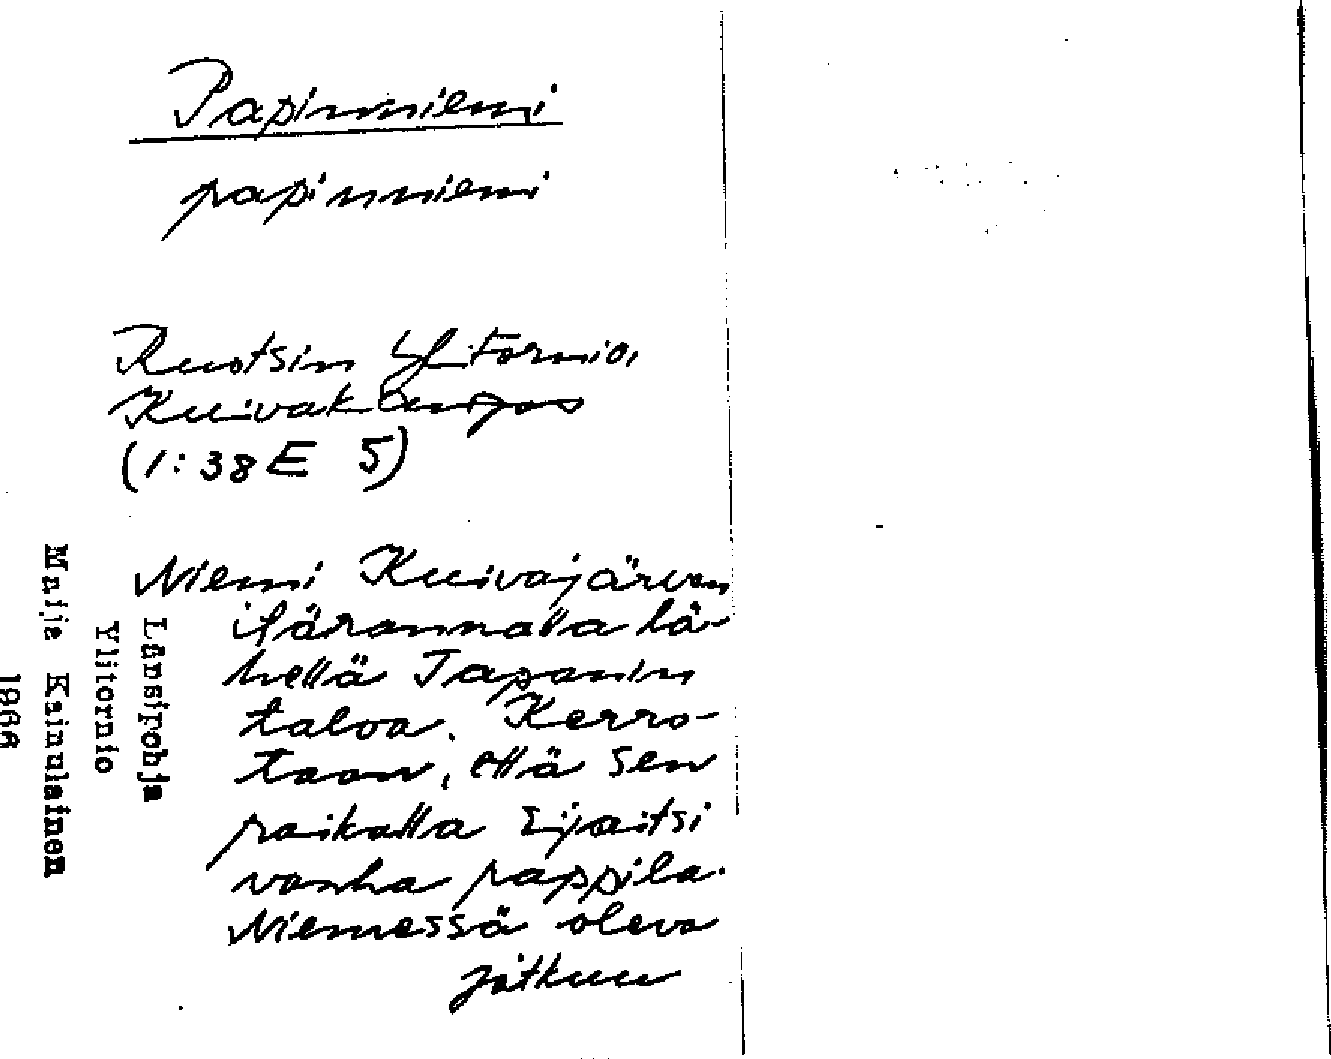 Papinniemi
papinniemi
Ruotsin Ylitornio,
Kuivakangas
(1:38E 5)
Niemi Kuivajärven
itärannalla lä-
hellä Tapanin
taloa. Kerro-
taan, että sen
paikalla sijaitsi
vanha pappila.
Niemessä oleva
jatkuu
Länsipohja
Ylitornio
Maija Kainulainen
1966